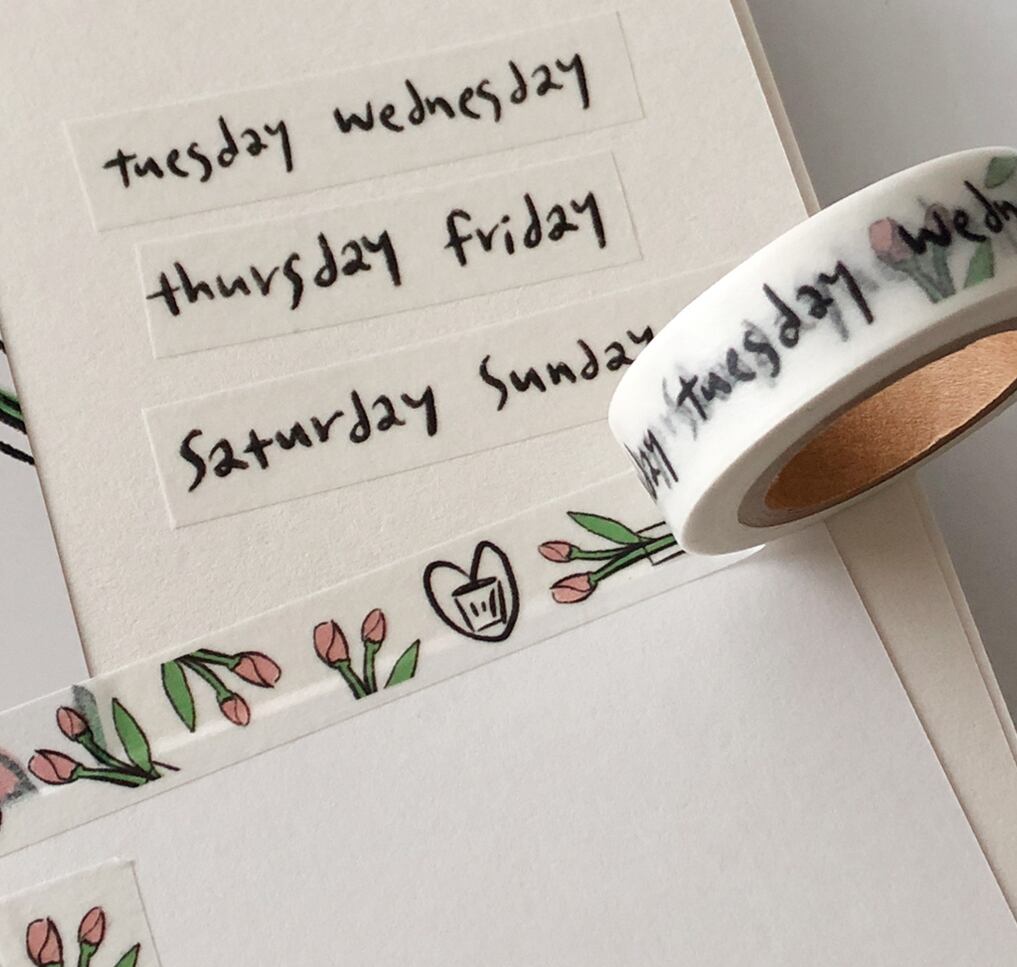 tuesday wednesday
thursday friday
Saturday Sunday
day tuesday wedn